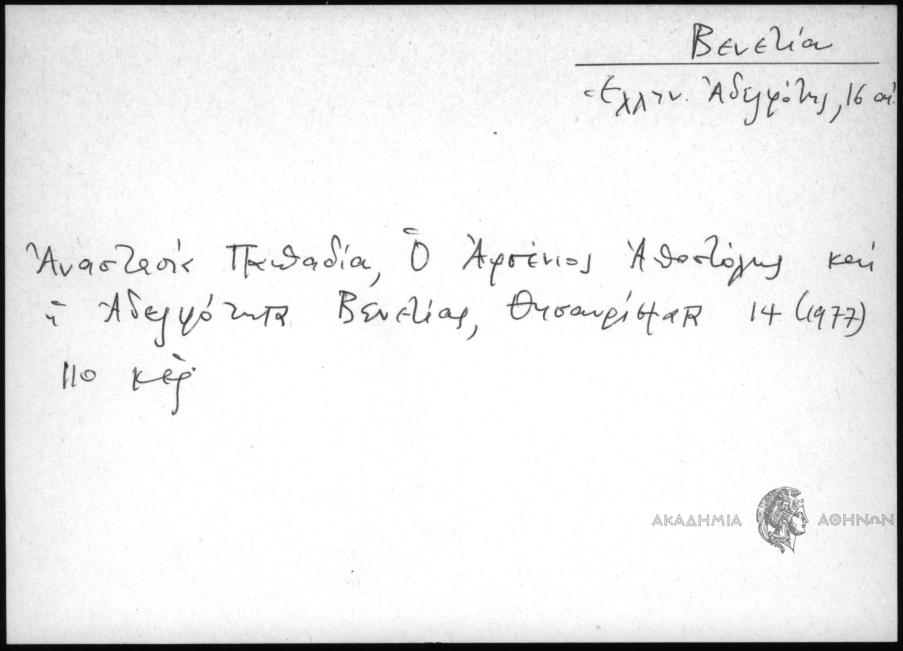 Βενετία
Ἑλλην. Ἀδελφότης, 16 αἰ.
Ἀναστασία Παπαδία, Ὁ Ἀρσένιος Ἀποστόλης καὶ
ἡ Ἀδελφότητα Βενετίας, Θησαυρίσματα 14 (1977)
110 κἑξ
ΑΚΑΔΗΜΙΑ ΑΘΗΝΩΝ